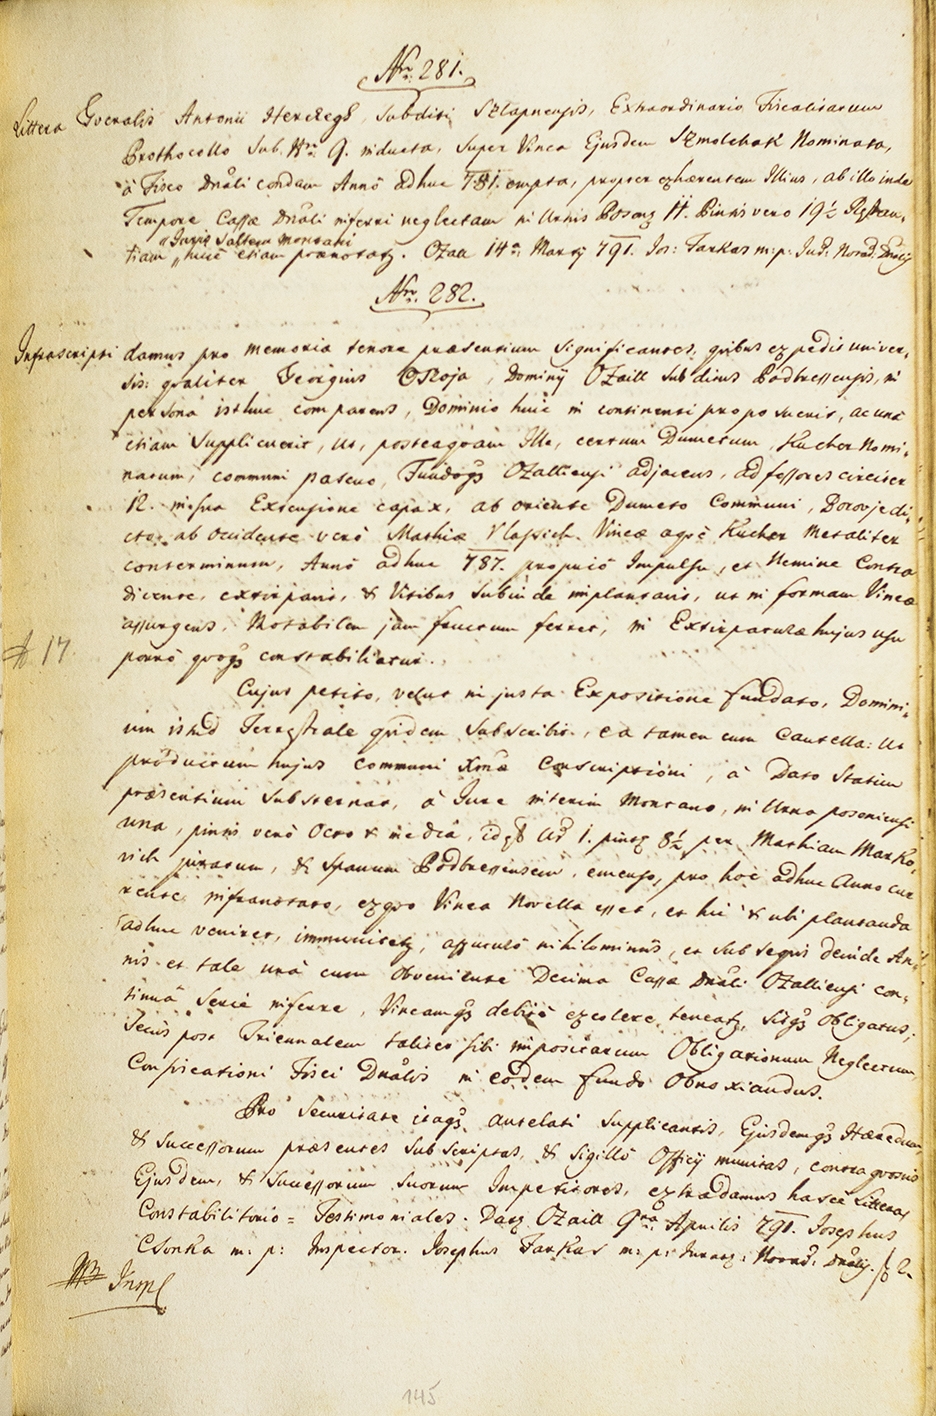 Nro. 281.
Littera Gvcralis Antonii Herczegh, Subditi Szlapnensis, Extraordinario Fiscalitatum
Prothocollo Sub Nro 9. inducta, Super Vinea Ejusdem Szmolchak Nominata,
à Fisco Dnáli condam Annô adhuc 781. empta, propter exhærentem Illius, ab illo inde
Tempore Cassæ Dnáli inferri neglectam in Urnis Poson 11. Pintis vero 19½
"Juris Saltem Montani
tiam " huic etiam prænotatq. Ozail 14a Martÿ 791. Jos: Farkas m: p: Jud: Norad: Dnális
Nro. 282.
Infrascripti damus pro memoria tenore præsentium Significantes, quibus expedit univer,
sis: qvaliter Georgius Osoja, Dominÿ Ozaill Subditus Podbressensis, in
persona isthuc comparens, Dominio huic in continenti proposuerit, ac unà
etiam Supplicuerit, ut, posteaqvam Ille, certum Dumetum, Kucher Nomi,
natum, communi pascuo, Fundoqs Ozalliensi adjacens, ad fossores circiter
12. in sua Extensione capax, ab oriente Dumeto Communi, Borovje di,
cto, ab Occidente verò Mathiæ Vlassich Vineæ aqvè Kucher metaliter
conterminum, Annô adhuc 787. propriô Impulsu, et Nemine Contra
dicente, extirpans, & Vitibus Subinde implantans, ut in formam Vineæ
assurgens, Notabilem jam fructum ferret, in Extirpaturæ hujus usu
porrò qvoqs constabiliatur.
A. 17.
Cujus petito, velut in justa Expositione fundato, Domini,
um istud Terrestrale qvidem Subscribit, ea tamen cum Cautella: Ut
productum hujus communi Xmæ Conscriptioni, à Dato Statim
præsentium Substernat, à Jure interim Montano, in Urna poseniensi
una, pintis verò Octo & media, idqs Ur 1. pintq 8½ per Mathiam Marko,
vich juratum, & Spanum Podbressensem, emenso, pro hoc adhuc Anno cur
rente, infranotato, exqvo Vinea Novella esset, et hic & ubi plantanda
adhuc veniret, immunitetq, assuctô nihilominus, et subseqvis deinde An,
nis et tale unà cum Obveniente Decima Cassæ Dnáli Ozalliensi con,
tinuâ Serie inferre, Vineamqs debitè excolere, teneatq, Sitqs Obligatus;
Secùs post Triennalem taliter sibi impositarum Obligationum Neglectum
Confiscationi Fisci Dnális in eodem fundo Obnoxiandus.
Pro Securitate itaqs antelati Supplicantis, Ejusdemqs Hæredum
& Successorum præsentes Subscriptas, & Sigillô Officÿ munitas, contra qvosvis
Ejusdem, & Successorum Suorum Impetitores, extradamus hasce Litteras
Constabilitorio = Testimoniales. Datq Ozail 9na Aprilis 791. Josephus
Csonka m: p: Inspector. Josephus Farkas m: p: Juratq: Norad: Dnális. f 2.
Insp
145